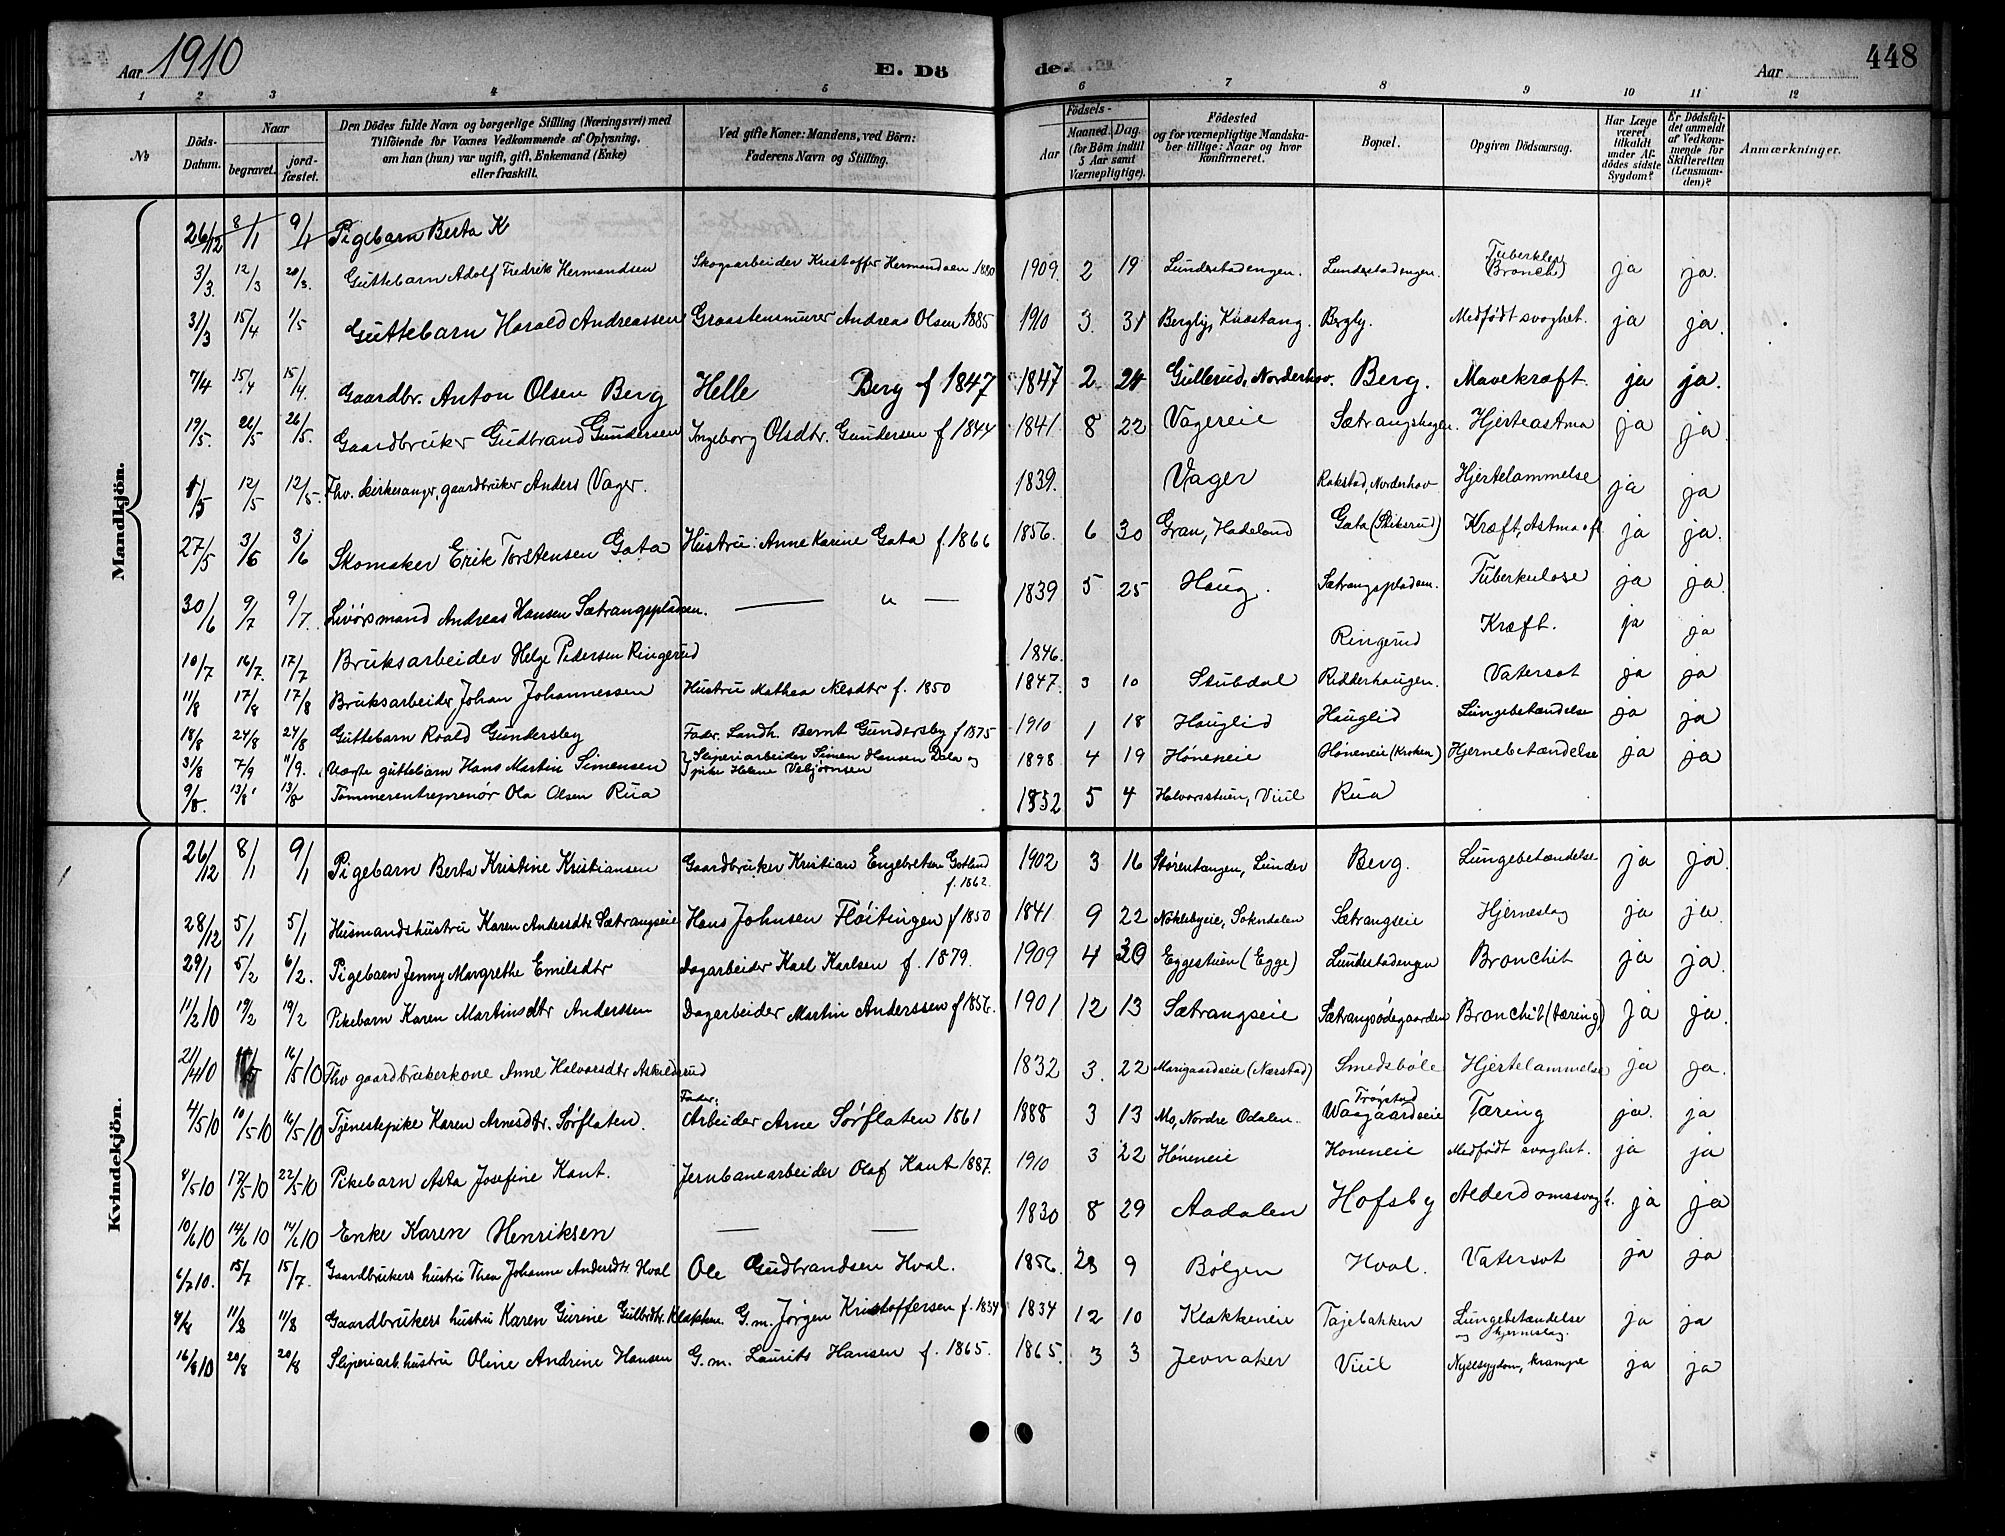 Aar 1910 E. Döde. Aar 448
1 2 3 4 5 6 7 8 9 10 11 12
No
Döds-Datum.
Naar begravet. jordfæstet.
Den Dödes fulde Navn og borgerlige Stilling (Næringsvei) med Tilföiende for Voxnes Vedkommende af Oplysning, om han (hun) var ugift, gift, Enkemand (Enke) eller fraskilt.
Ved gifte Koner: Mandens, ved Börn: Faderens Navn og Stilling.
Födsels- Aar Maaned. Dag. (for Börn indtil 5 Aar samt Værnepligtige).
Födested og for værnepligtige Mandskaber tillige: Naar og hvor Konfirmeret.
Bopæl.
Opgiven Dödsaarsag.
Har Læge været tilkaldt under Afdödes sidste Sygdom?
Er Dödsfaldet anmeldt af Vedkommende for Skifteretten (Lensmanden)?
Anmærkninger.
Mandkjön.
26/12 8/1 9/1 Pigebarn Berta K
3/3. 12/3 20/3. Guttebarn Adolf Fredrik Hermandsen Skogsarbeider Kristoffer Hermandsen 1880 1909. 2 19 Lundestadengen. Lundestadengen. ja ja.
31/3 15/4 1/5 Guttebarn Harald Andreassen Graastensmurer Andreas Olsen 1885 1910 3. 31 Bergly, Knestang. Bergly. Medfödt svaghet. ja ja.
7/4 15/4 15/4. Gaardbr. Anton Olsen Berg Helle Berg f 1847 1847 2. 24 Gullerud, Norderhov. Berg. Mavekræft. ja ja.
19/5. 22/5 26/5. Gaardbruker Gudbrand Gundersen Ingeborg Olsdtr. Gundersen f 1844 1841 8 22 Vagereie Sætrangshagen. Hjerteastma ja ja.
1/5 12/5 12/5. Fhv. kirkesanger, gaardbruker Anders Vager. 1839. Vager Rakstad, Norderhov Hjertelammelse ja ja
27/5 3/6 3/6 Skomaker Erik Torstensen Gata Hustru: Anne Karine Gata f. 1866 1856. 6 30 Gran, Hadeland Gata (Stiksrud) Kræft, Astma ofl ja ja.
30/6 9/7 9/7. Livörsmand Andreas Hansen Sætrangspladsen. — " — 1839 5 25 Haug. Sætrangspladsen. Tuberkulose ja ja.
10/7 16/7. 17/7 Bruksarbeider Helge Pedersen Ringerud 1846. Ringerud Kræft. ja ja
11/8 17/8 17/8 Bruksarbeider Johan Johannessen Hustru Mathea Nilsdtr f. 1850 1847. 3 10 Stubdal Ridderhaugen. Vatersot ja ja
18/8 24/8 24/8 Guttebarn Roald Gundersby Fader. Landh. Bernt Gundersby f 1875 1910 1 18 Hauglid Hauglid Lungebetændelse ja ja
31/8 7/9 11/9. Uægte guttebarn Hans Martin Simensen Sliperiarbeider Simen Hansen Dala og pike Helene Vebjørnsen 1898 4 19 Høneneie Høneneie (Kroken) Hjernebetændelse ja ja
9/8. 13/8 13/8 Tømmerentreprenør Ola Olsen Rua 1832 5 4 Halvorsstuen, Viul Rua
Kvindekjön.
26/12 8/1 9/1 Pigebarn Berta Kristine Kristiansen Gaardbruker Kristian Engebretsen Gotlund f. 1862. 1902 3 16 Størentangen, Lunder Berg. Lungebetændelse ja ja.
28/12 5/1 5/1 Husmandshustru Karen Andersdtr Sætrangseie Hans Johnsen Fløitingen f 1850 1841 9 22 Noklebyeie, Sokndalen Sætrangseie Hjerneslag ja ja.
29/1 5/2 6/2. Pigebarn Jenny Margrethe Emilsdtr Dagarbeider Karl Karlsen f. 1879. 1909 4 30 Eggestuen (Egge) Lundestadengen Bronchit ja ja.
11/2 10 19/2 19/2 Pikebarn Karen Martinsdtr Anderssen Dagarbeider Martin Anderssen f 1856. 1901 12 13 Sætrangseie Sætrangsødegaarden Bronchit (tæring) ja ja.
21/4 10 16/5 10 Fhv gaardbrukerkone Anne Halvorsdtr Askildsrud 1832 3. 22 Marigaardseie (Nærstad) Smedsbøle Hjertelammelse ja ja.
4/5 10 10/5 10 16/5 10 Tjenestepike Karen Arnesdtr. Sørflaten. Fader: Arbeider Arne Sørflaten 1861 1888 3 13 Mo, Nordre Odalen. Trøgstad Waagaardseie Tæring ja. ja
4/5 10 17/5 10 22/5 10 Pikebarn Asta Josefine Kant. Jernbanearbeider Olaf Kant 1887. 1910 3 22 Høneneie Høneneie Medfødt svaghet. ja ja
10/6 10 14/6 10 14/6 10 Enke Karen Henriksen — — 1830 8 29 Aadalen Hofsby Alderdomssvagh. ja ja
6/7 10. 15/7 15/7. Gaardbrukers hustru Thea Johanne Andersdtr. Hval Ole Gudbrandsen Hval. 1856. 9 Bølgen Hval. Vatersot ja ja
4/8 11/8 11/8 Gaardbrukers hustru Karen Gurine Gulbrdtr. Klækken. G. m. Jørgen Kristoffersen f. 1834 1834 12 10 Klækkeneie Tajebakken Lungebetændelse og hjerneslag. ja ja
16/8 10 20/8 20/8 Sliperiarb. hustru Oline Andrine Hansen G. m. Laurits Hansen f. 1865. 1865. 3 3 Jevnaker Viul Nyresygdom, krampe ja ja